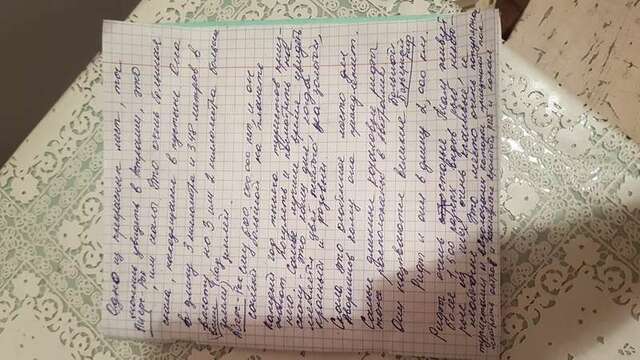 Одно из прекрасных мест, ты
можешь увидеть в Астралии, это
Айерс-Рок
, или скалы Это очень большая
скала, находящаяся в пустыне Она
в длину 3 километра и 348 метров в
высоту но 3 или 2 километра больше
ниже (под
земли) землей.
Айерс-Рок ему 600 000 000 лет, и он
самый большой на планете
Каждый год тысячи туристов приез-
жают погулять и посмотреть на
него Самое лучшее время увидеть
скалу - это конец дня когда
меняется цвет на золотой
красный и розовый
Скала это особенное место для
кому она принадлежит.
Самые длинные кораловые рифы
тоже расположены в Австралии
Они называются великие Большой
Барьерный
риф
Рифт и они в длину 2,000 км.
Рифты очень старые Там живут
более 1,500 разных видов рыб, некото-
рые из них очень красивые и
необычные Это место очень популярно
туристами и которые приезжают пос-
мотреть остров и рыб и корал